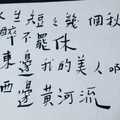 人生短々幾個秋
醉不罷休
東邊我的美人啊
西邊黃河流